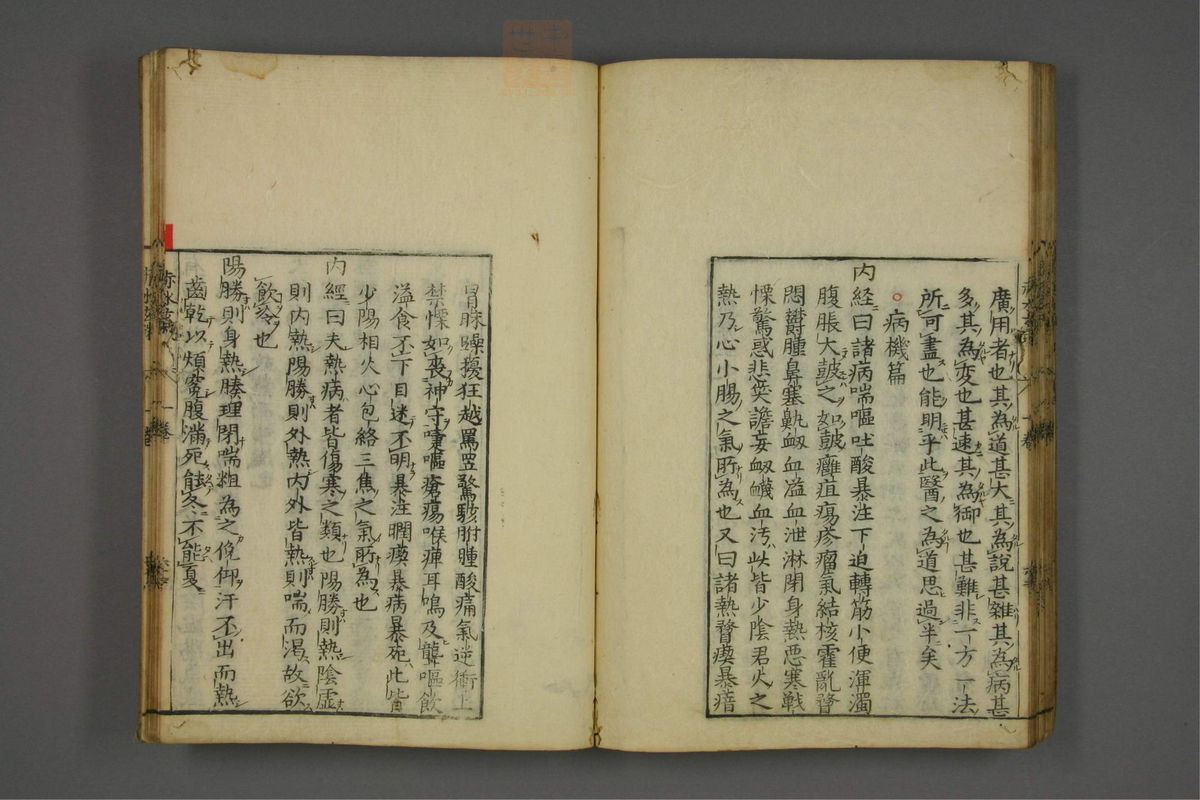 廣用者也其為道甚大其為說甚雜其為病甚
多其為变也甚速其為御也甚難非一方一法
所可盡也能明乎此醫之為道思過半矣
病機篇
内経曰諸病喘嘔吐酸暴注下迫轉筋小便渾濁
腹脹大皷之如皷癰疽瘍疹瘤氣結核霍亂瞀
悶欝腫鼻塞鼽衂血溢血泄淋閉身熱悪寒戦
慄驚惑悲笑譫妄衂衊血汚此皆少陰君火之
熱乃心小腸之氣所為也又曰諸熱瞀瘈暴瘖
冒昧躁擾狂越罵詈驚駭胕腫酸痛氣逆衝上
禁慄如喪神守嚏嘔瘡瘍喉痺耳鳴及聾嘔飲
溢食不下目迷不明暴注瞤瘈暴病暴死此皆
少陽相火心包絡三焦之氣所為也
内經曰夫熱病者皆傷寒之類也陽勝則熱陰虚
則内熱陽勝則外熱内外皆熱則喘而渇故欲
飲冷也
陽勝則身熱腠理閉喘粗為之俛仰汗不出而熱
齒乾以煩寃腹滿死能冬不能夏